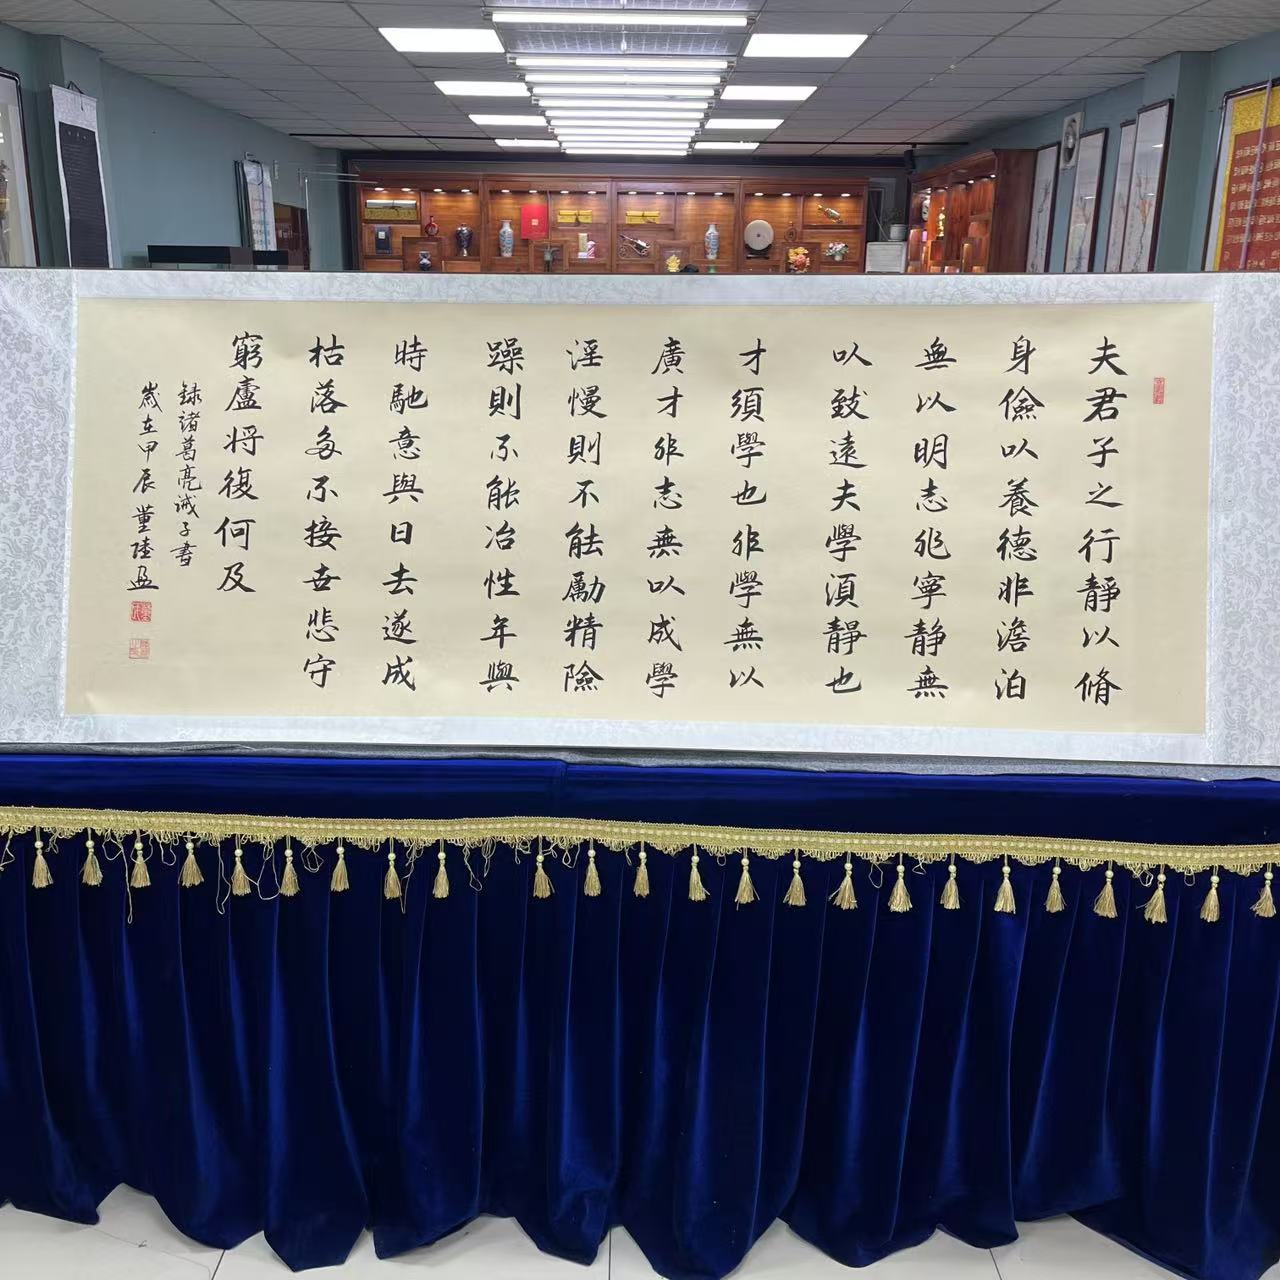 夫君子之行靜以脩
身儉以養德非澹泊
無以明志非寧靜無
以致遠夫學須靜也
才須學也非學無以
廣才非志無以成學
淫慢則不能勵精險
躁則不能冶性年與
時馳意與日去遂成
枯落多不接世悲守
窮廬将復何及
録諸葛亮誡子書
歲在甲辰董陸盈